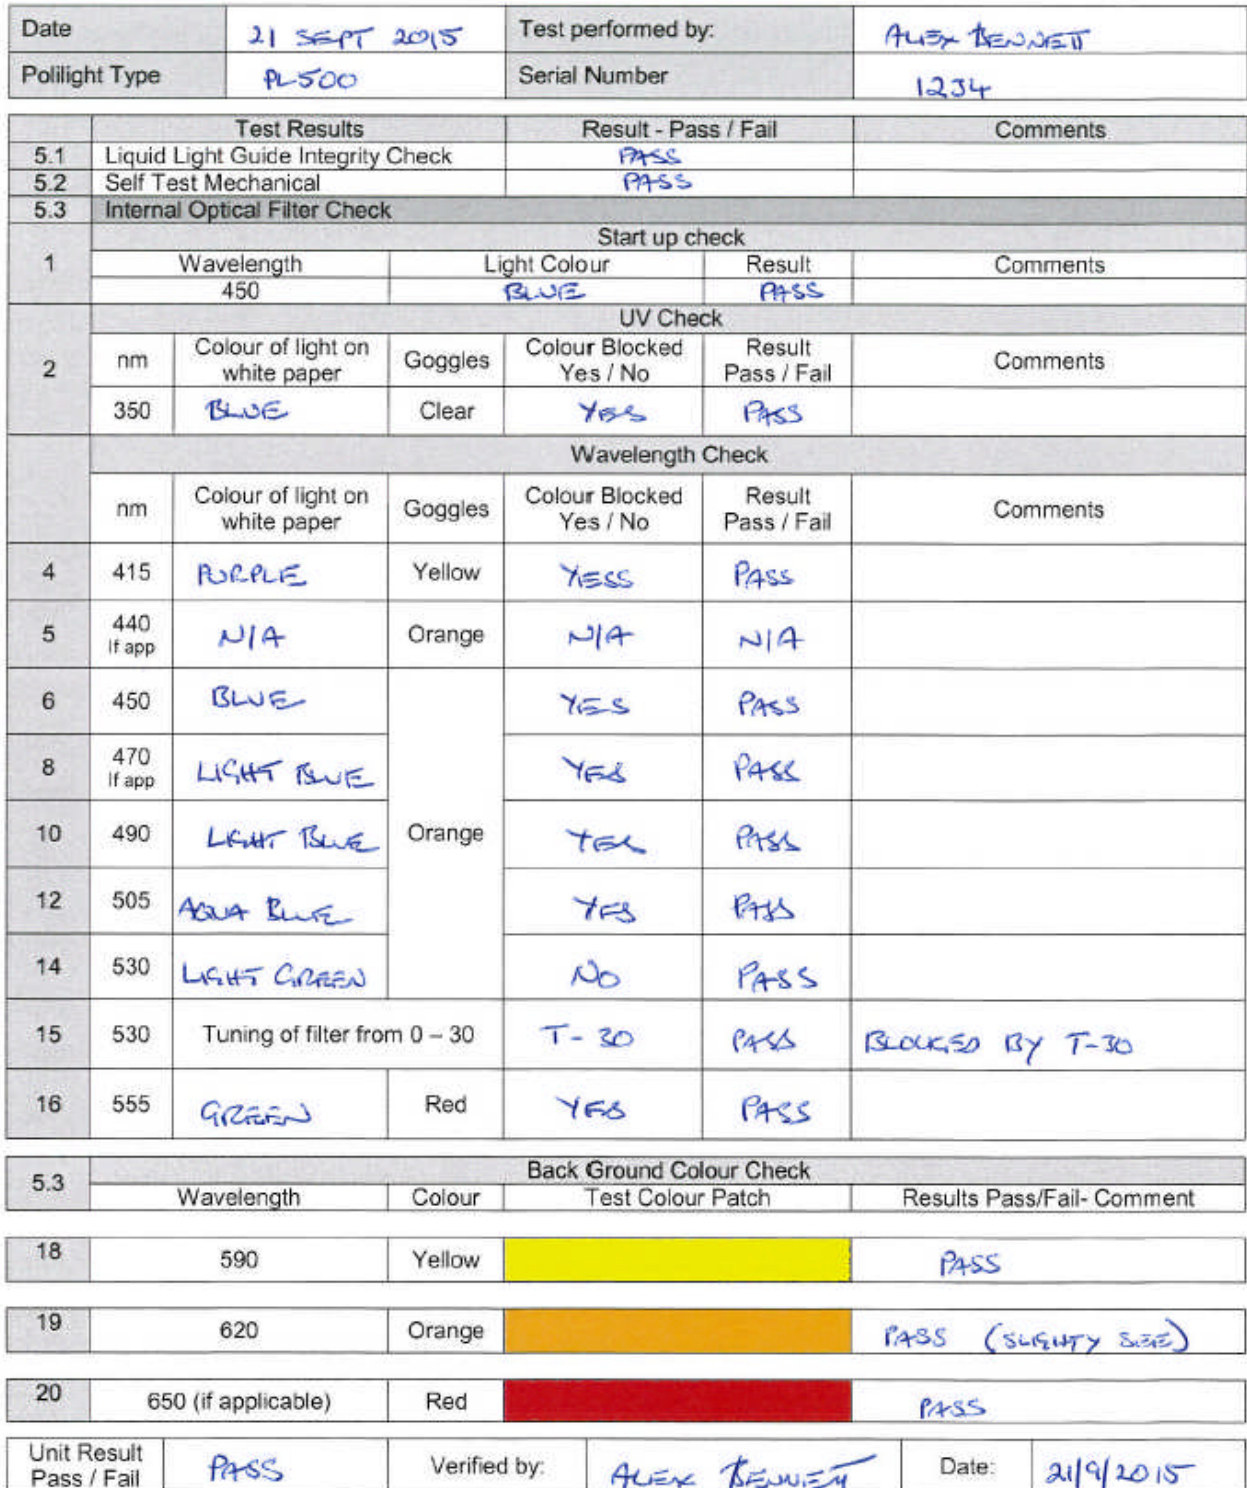 Date 21 SEPT 2015 Test performed by: ALEX BENNETT
Polilight Type PL500 Serial Number 1234
Test Results Result - Pass / Fail Comments
5.1 Liquid Light Guide Integrity Check PASS
5.2 Self Test Mechanical PASS
5.3 Internal Optical Filter Check
Start up check
1 Wavelength Light Colour Result Comments
450 BLUE PASS
UV Check
2 nm Colour of light on white paper Goggles Colour Blocked Yes / No Result Pass / Fail Comments
350 BLUE Clear YES PASS
Wavelength Check
nm Colour of light on white paper Goggles Colour Blocked Yes / No Result Pass / Fail Comments
4 415 PURPLE Yellow YESS PASS
5 440 If app N/A Orange N/A N/A
6 450 BLUE YES PASS
8 470 If app LIGHT BLUE YES PASS
10 490 LIGHT BLUE Orange YES PASS
12 505 AQUA BLUE YES PASS
14 530 LIGHT GREEN NO PASS
15 530 Tuning of filter from 0 – 30 T-30 PASS BLOCKED BY T-30
16 555 GREEN Red YES PASS
5.3 Back Ground Colour Check
Wavelength Colour Test Colour Patch Results Pass/Fail- Comment
18 590 Yellow PASS
19 620 Orange PASS (SLIGHTY SEE)
20 650 (if applicable) Red PASS
Unit Result Pass / Fail PASS Verified by: ALEX BENNETT Date: 21/9/2015